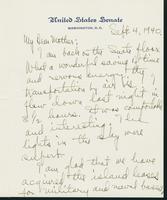 United States Senate
WASHINGTON, D.C.
Sept 4, 1940.
My Dear Mother;
I am back on the Senate floor.
What a wonderful saving of time
and nervous energy is the
transportation by air is. I
flew down last night in
2 hours. It was comfortable
and interesting. The
lights in the sky were
superb.
I am glad that we have
acquired the island leases
for military and naval bases